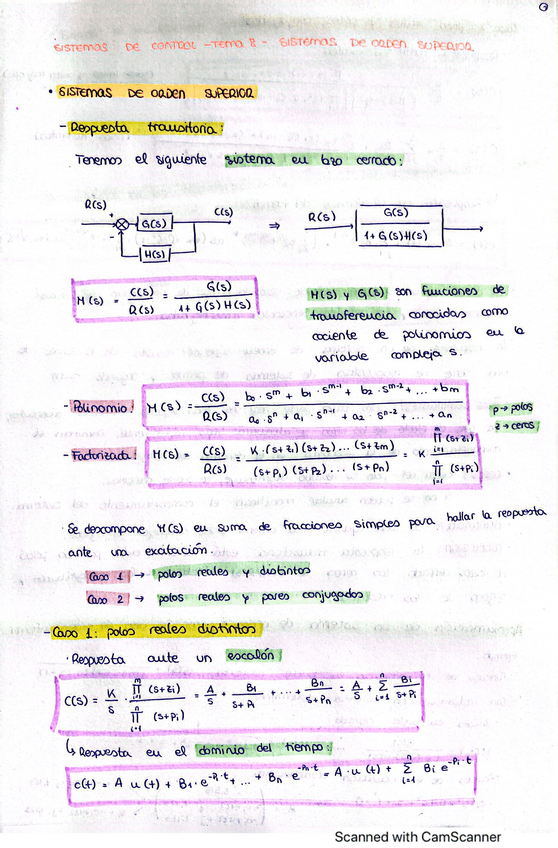 SISTEMAS DE CONTROL - TEMA 8 - SISTEMAS DE ORDEN SUPERIOR
• SISTEMAS DE ORDEN SUPERIOR
- Respuesta transitoria:
Tenemos el siguiente sistema en bzo cerrado:
R(s) + - G(s) H(s) C(s) ⇒ R(s) G(s) / 1+G(s)H(s)
M(s) = C(s)/R(s) = G(s)/(1+G(s)H(s))
H(s) y G(s) son funciones de
transferencia conocidas como
cociente de polinomios en la
variable compleja s.
- Polinomio: M(s) = C(s)/R(s) = (b₀·s^m + b₁·s^(m-1) + b₂·s^(m-2) + ... + bm)/(a₀·s^n + a₁·s^(n-1) + a₂·s^(n-2) + ... + an)
p → polos
z → ceros
- Factorizada: M(s) = C(s)/R(s) = K·(s+z₁)(s+z₂)...(s+zm)/((s+p₁)(s+p₂)...(s+pn)) = K ∏_(i=1)^m (s+zi) / ∏_(i=1)^n (s+pi)
· Se descompone M(s) en suma de fracciones simples para hallar la respuesta
ante una excitación.
Caso 1 → polos reales y distintos
Caso 2 → polos reales y pares conjugados
- Caso 1: polos reales distintos
· Respuesta ante un escalón:
C(s) = K/s · ∏_(i=1)^m (s+zi) / ∏_(i=1)^n (s+pi) = A/s + B₁/(s+p₁) + ... + Bn/(s+pn) = A/s + Σ_(i=1)^n Bi/(s+pi)
↳ Respuesta en el dominio del tiempo:
c(t) = A u(t) + B₁·e^(-p₁·t) + ... + Bn·e^(-pn·t) = A·u(t) + Σ_(i=1)^n Bi e^(-pi·t)
Scanned with CamScanner